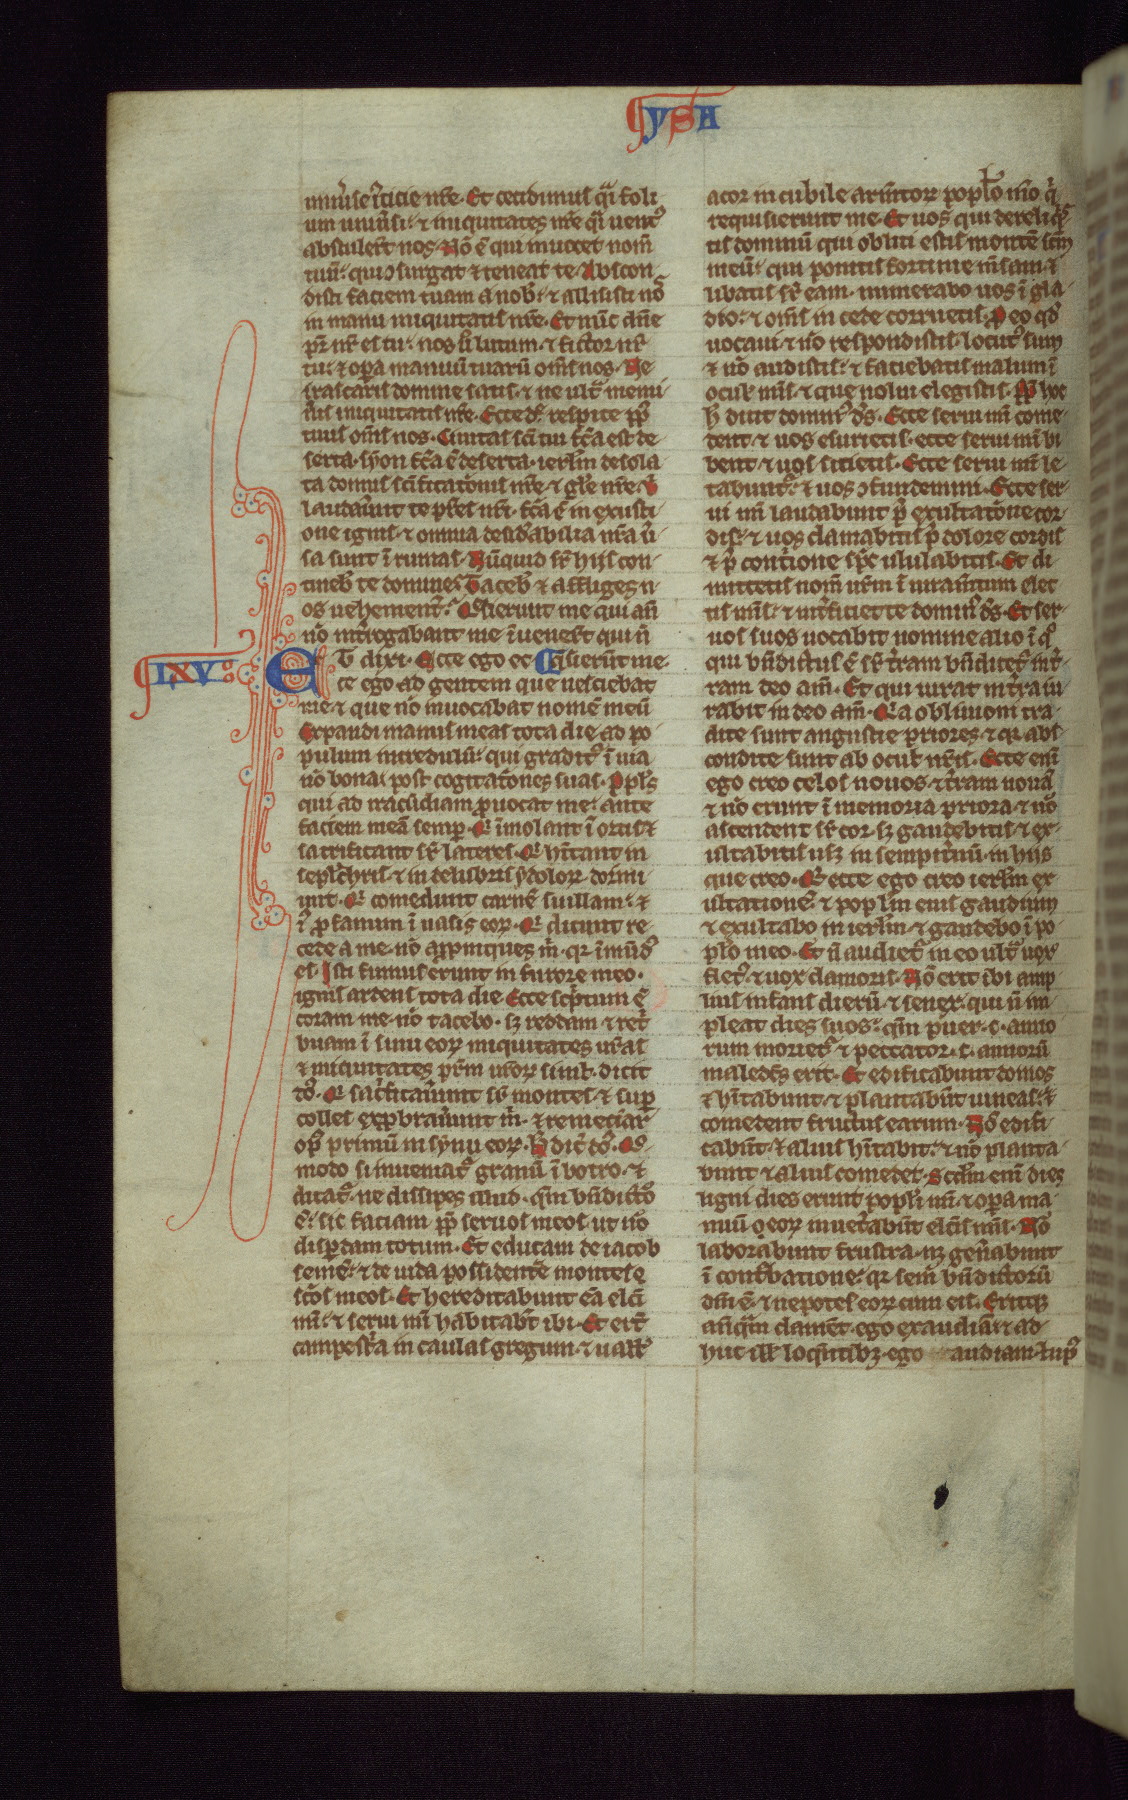 YSA
uniu̅se iusticie nr̅e. Et cecidimus q̅i foli
um uniu̅si. et iniquitates nr̅e q̅i uent᷒
abstuler̅t nos. No̅ e̅ qui inuocet nom̅
tuu̅: qui ɔsurgat et teneat te. Abscon
disti faciem tuam a nob̅. et allisisti no̅
in manu iniquitatis nr̅e. Et nu̅c dn̅e
pr̅ nr̅ es tu: nos u̅ lutum. et fictor nr̅
tu: et op̅a manuu̅ tuaru̅ om̅s nos. Ne
irascaris domine satis. et ne ult̅ memi
neris iniquitatis nr̅e. Ecce dn̅e respice pp̅s
tuus om̅s nos. Ciuitas sc̅i tui fc̅a est de
serta. syon fc̅a e̅ deserta. ierl̅m desola
ta domus sc̅ificat̅onis nr̅e et gl̅e nr̅e. V
laudau̅unt te pr̅es nr̅i. fc̅a e̅ in exusti
one ignis. et omnia desid̅abilia nr̅a u̅
sa sunt i̅ ruinas. Nu̅quid sr̅ hiis con
tineb̅ te domine. Taceb̅ et affliges n
os uehement̅. Q̅sierunt me qui an̅
no̅ int̅rogabant me. i̅uener̅t qui n̅
LXV. Et dixi. Ecce ego ec Q̅sieru̅t me
ce ego ad gentem que nesciebat
me et que no̅ inuocabat nome̅ meu̅
Expandi manus meas tota die ad po
pulum incredulu̅. qui gradit᷒ i̅ uia
no̅ bona: post cogitat̅ones suas. Ppl̅s
qui ad iracu̅diam p̅uocat me: ante
faciem mea̅ semp̅. Q̅i i̅molant i̅ ortis et
sacrificant sr̅ lateres. Q̅i h̅itant in
sepulchris. et in delubris ydolor̅ dormi
unt. Q̅i comedunt carne̅ suillam. et
i̅ p̅fanum i̅ uasis eor̅. Q̅i dicunt re
cede a me. no̅ app̅inques m̅. qr̅ i̅mu̅d᷒
es. Isti fumus erunt in furore meo.
ignis ardens tota die Ecce sc̅ptum e̅
coram me. no̅ tacebo. sꝫ reddam et ret̅
buam i̅ sinu eor̅ iniquitates ur̅as
et iniquitates pr̅m ur̅or̅ simul. dicit
do̅. Q̅i sac̅ficau̅unt sr̅ montes. et sup̅
colles exp̅brau̅unt m̅. et remeciar
op᷒ primu̅ in synu eor̅. H̅ dic̅ do̅. Q̅o
modo si inueniat᷒ granu̅ i̅ botro. et
dicat᷒ ne dissipes illud. qm̅ bn̅dict̅o
e̅: sic faciam pp̅ seruos meos. ut no̅
disp̅dam totum. Et educam de iacob
seme̅. et de iuda possidente̅ montes
sc̅os meos. Et hereditabunt ea̅ elc̅i
mi̅. et serui mi̅ habitab̅t ibi. Et er̅t
campest̅a in caulas gregum. et uall̅
acor in cubile arm̅tor̅ popl̅o m̅o q̅i
requisierunt me. Et uos qui dereliq̅s
tis dominu̅ qui obliti estis monte̅ sc̅m
meu̅. qui ponitis fortune m̅sam et
libatis sr̅ eam. numerabo uos i̅ gla
dio. et om̅s in cede corruetis. P̅ eo qd̅
uocaui et no̅ respondistis. locut᷒ sum
et no̅ audistis. et faciebatis malum i̅
oculis m̅s. et que nolui elegistis. Pp̅ hoc
h̅ dicit domin᷒ d̅s. Ecce serui mi̅ come
dent. et uos esurietis. ecce serui mi̅ bi
bent. et uos sitietis. Ecce serui mi̅ le
tabunt᷒. et uos ɔfundemini. Ecce ser
ui mi̅ laudabunt p̅ exultat̅one cor
dis. et uos clamabitis p̅ dolore cordis
et p̅ cont̅icione sp̅c ululabitis. Et di
mittetis nom̅ ur̅m i̅ iuram̅tum elec
tis m̅s. et int̅ficiet te domin᷒ d̅s. Et ser
uos suos uocabit nomine alio i̅ q᷒
qui bn̅dictus e̅ sr̅ t̅ram bn̅dicet᷒ in t̅
ram deo am̅. Et qui iurat in t̅ra iu
rabit in deo am̅. Q̅ia obliuioni tra
dite sunt angustie p̅iores. et qr̅ abs
condite sunt ab ocul̅ nr̅is. Ecce eni̅
ego creo celos nouos. et t̅ram noua̅
et no̅ erunt i̅ memoria p̅iora. et no̅
ascendent sr̅ cor. sꝫ gaudebitis et ex
ultabitis usꝫ in sempit̅nu̅ in hiis
que creo. Q̅i ecce ego creo ierl̅m ex
ultatione̅. et popl̅m eius gaudium
et exultabo in ierl̅m. et gaudebo i̅ po
pl̅o meo. Et n̅ audiet᷒ in eo ult̅ uox
flet᷒. et uox clamoris. No̅ erit ibi amp
lius infans dieru̅. et senex. qui n̅ im
pleat dies suos. qm̅ puer. c. anno
rum moriet᷒. et peccator. c. annoru̅
maledc̅s erit. Et edificabunt domos
et h̅itabunt. et plantabu̅t uineas. et
comedent fructus earum. No̅ edifi
cabu̅t. et alius h̅itabit. et no̅ planta
bunt et alius comedet. Sc̅d̅m eni̅ dies
ligni dies erunt popl̅i mi̅. et op̅a ma
nuu̅ eor̅ inuet̅abu̅t elc̅is m̅s. No̅
laborabunt frustra. nꝫ gen̅abunt
i̅ cont̅batione. qr̅ sem̅ bn̅dictoru̅
dn̅i e̅. et nepotes eor̅ cum eis. Eritqꝫ
an̅q̅m clame̅t. ego exaudia̅. et ad
huc ill̅ loq̅ntibꝫ. ego audiam. Lup᷒